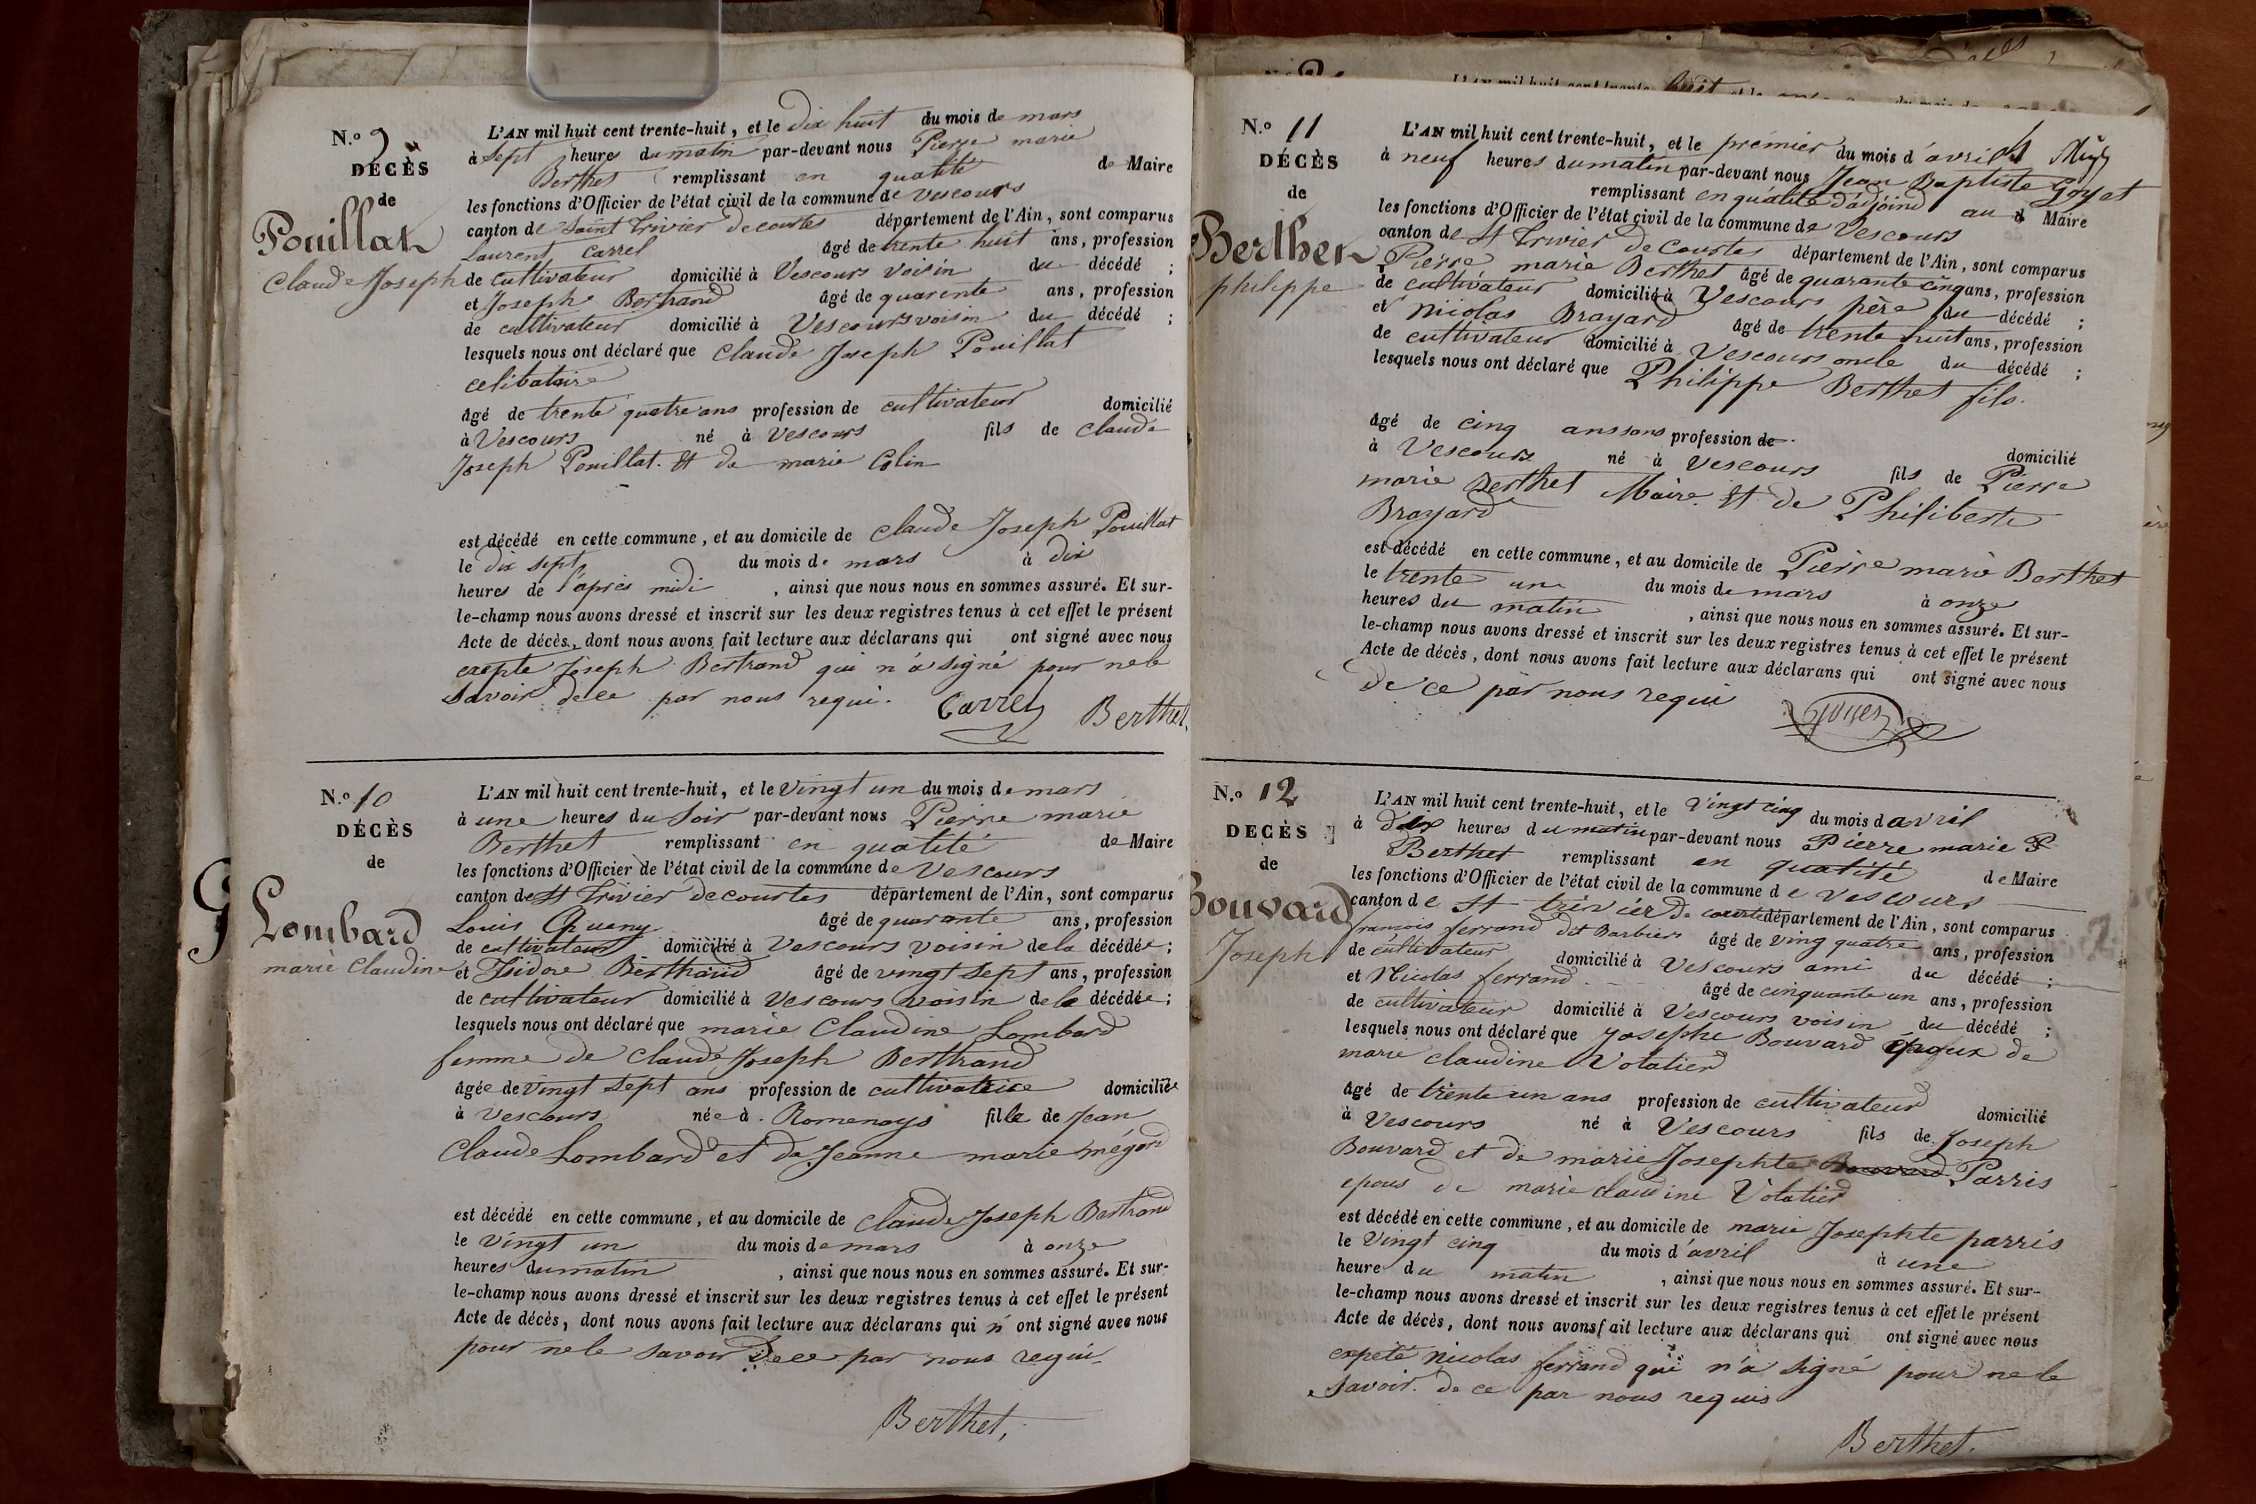 N.º 9
DÉCÈS
de
Pouillat
Claude Joseph
L'AN mil huit cent trente-huit, et le dix huit du mois de mars
à sept heures du matin par-devant nous Pierre marie
Berthet remplissant en qualité de Maire
les fonctions d'Officier de l'état civil de la commune de vescours
canton de Saint Trivier de courtes département de l'Ain, sont comparus
Laurent Carrel âgé de trente huit ans, profession
de cultivateur domicilié à Vescours voisin du décédé ;
et Joseph Bertrand âgé de quarente ans, profession
de cultivateur domicilié à Vescours voisin du décédé ;
lesquels nous ont déclaré que Claude Joseph Pouillat
celibataire
âgé de trente quatre ans profession de cultivateur domicilié
à Vescours né à Vescours fils de Claude
Joseph Pouillat. Et de marie Colin
est décédé en cette commune, et au domicile de Claude Joseph Pouillat
le dix sept du mois de mars à dix
heures de l'après midi , ainsi que nous nous en sommes assuré. Et sur-
le-champ nous avons dressé et inscrit sur les deux registres tenus à cet effet le présent
Acte de décès, dont nous avons fait lecture aux déclarans qui ont signé avec nous
exepte Joseph Bertrand qui n'a signé pour ne le
savoir dece par nous requi.
Carrel Berthet
N.º 10
DÉCÈS
de
Lombard
marie Claudine
L'AN mil huit cent trente-huit, et le vingt un du mois de mars
à une heures du soir par-devant nous Pierre marie
Berthet remplissant en qualité de Maire
les fonctions d'Officier de l'état civil de la commune de Vescours
canton de St Trivier de courtes département de l'Ain, sont comparus
Louis âgé de quarante ans, profession
de cultivateur domicilié à Vescours voisin de la décédée ;
et Isidore Berthand âgé de vingt sept ans, profession
de cultivateur domicilié à Vescours voisin de la décédée ;
lesquels nous ont déclaré que marie Claudine Lombard
femme de Claude Joseph Berttrand
âgée de vingt sept ans profession de cultivatrice domiciliée
à Vescours née à Romenays fille de Jean
Claude Lombard et de Jeanne marie mégard
est décédé en cette commune, et au domicile de Claude Joseph Bertrand
le vingt un du mois de mars à onze
heures du matin , ainsi que nous nous en sommes assuré. Et sur-
le-champ nous avons dressé et inscrit sur les deux registres tenus à cet effet le présent
Acte de décès, dont nous avons fait lecture aux déclarans qui n' ont signé avec nous
pour ne le savoir Dece par nous requi.
Berthet,
N.º 11
DÉCÈS
de
Berthet
philippe
L'AN mil huit cent trente-huit, et le prémier du mois d'avril
à neuf heures du matin par-devant nous Jean Baptiste Goyet
remplissant en qualité d'adjoind au Maire
les fonctions d'Officier de l'état civil de la commune de Vescours
canton de St Trivier de Courtes département de l'Ain, sont comparus
Pierre marie Berthet âgé de quarante cinq ans, profession
de cultivateur domicilié à Vescours père du décédé ;
et Nicolas Brayard âgé de trente huit ans, profession
de cultivateur domicilié à Vescours oncle du décédé ;
lesquels nous ont déclaré que Philippe Berthet fils.
âgé de cinq ans sans profession de
à Vescours né à Vescours domicilié
fils de Pierre
marie Berthet Maire. Et de Philiberte
Brayard
est décédé en cette commune, et au domicile de Pierre marie Berthet
le trente un du mois de mars à onze
heures du matin , ainsi que nous nous en sommes assuré. Et sur-
le-champ nous avons dressé et inscrit sur les deux registres tenus à cet effet le présent
Acte de décès, dont nous avons fait lecture aux déclarans qui ont signé avec nous
de ce par nous requi
Goyet
N.º 12
DECÈS
de
Bouvard
Joseph
L'AN mil huit cent trente-huit, et le vingt cinq du mois d avril
à dix heures du matin par-devant nous Pierre marie
Berthet remplissant en qualité de Maire
les fonctions d'Officier de l'état civil de la commune de Vescours
canton de St trivier de courtes département de l'Ain, sont comparus
francois ferrand dit Barbier âgé de ving quatre ans, profession
de cultivateur domicilié à Vescours ami du décédé ;
et Nicolas ferrand âgé de cinquante un ans, profession
de cultivateur domicilié à Vescours voisin du décédé ;
lesquels nous ont déclaré que Josephe Bouvard époux de
marie claudine Volatier
âgé de trente un ans profession de cultivateur domicilié
à Vescours né à Vescours fils de Joseph
Bouvard et de marie Josephte Bouvard Parris
epous de marie claudine Volatier
est décédé en cette commune, et au domicile de marie Josephte parris
le vingt cinq du mois d'avril à une
heure du matin , ainsi que nous nous en sommes assuré. Et sur-
le-champ nous avons dressé et inscrit sur les deux registres tenus à cet effet le présent
Acte de décès, dont nous avons fait lecture aux déclarans qui ont signé avec nous
expeté nicolas ferrand qui n'a signé pour ne le
savoir. de ce par nous requis
Berthet.